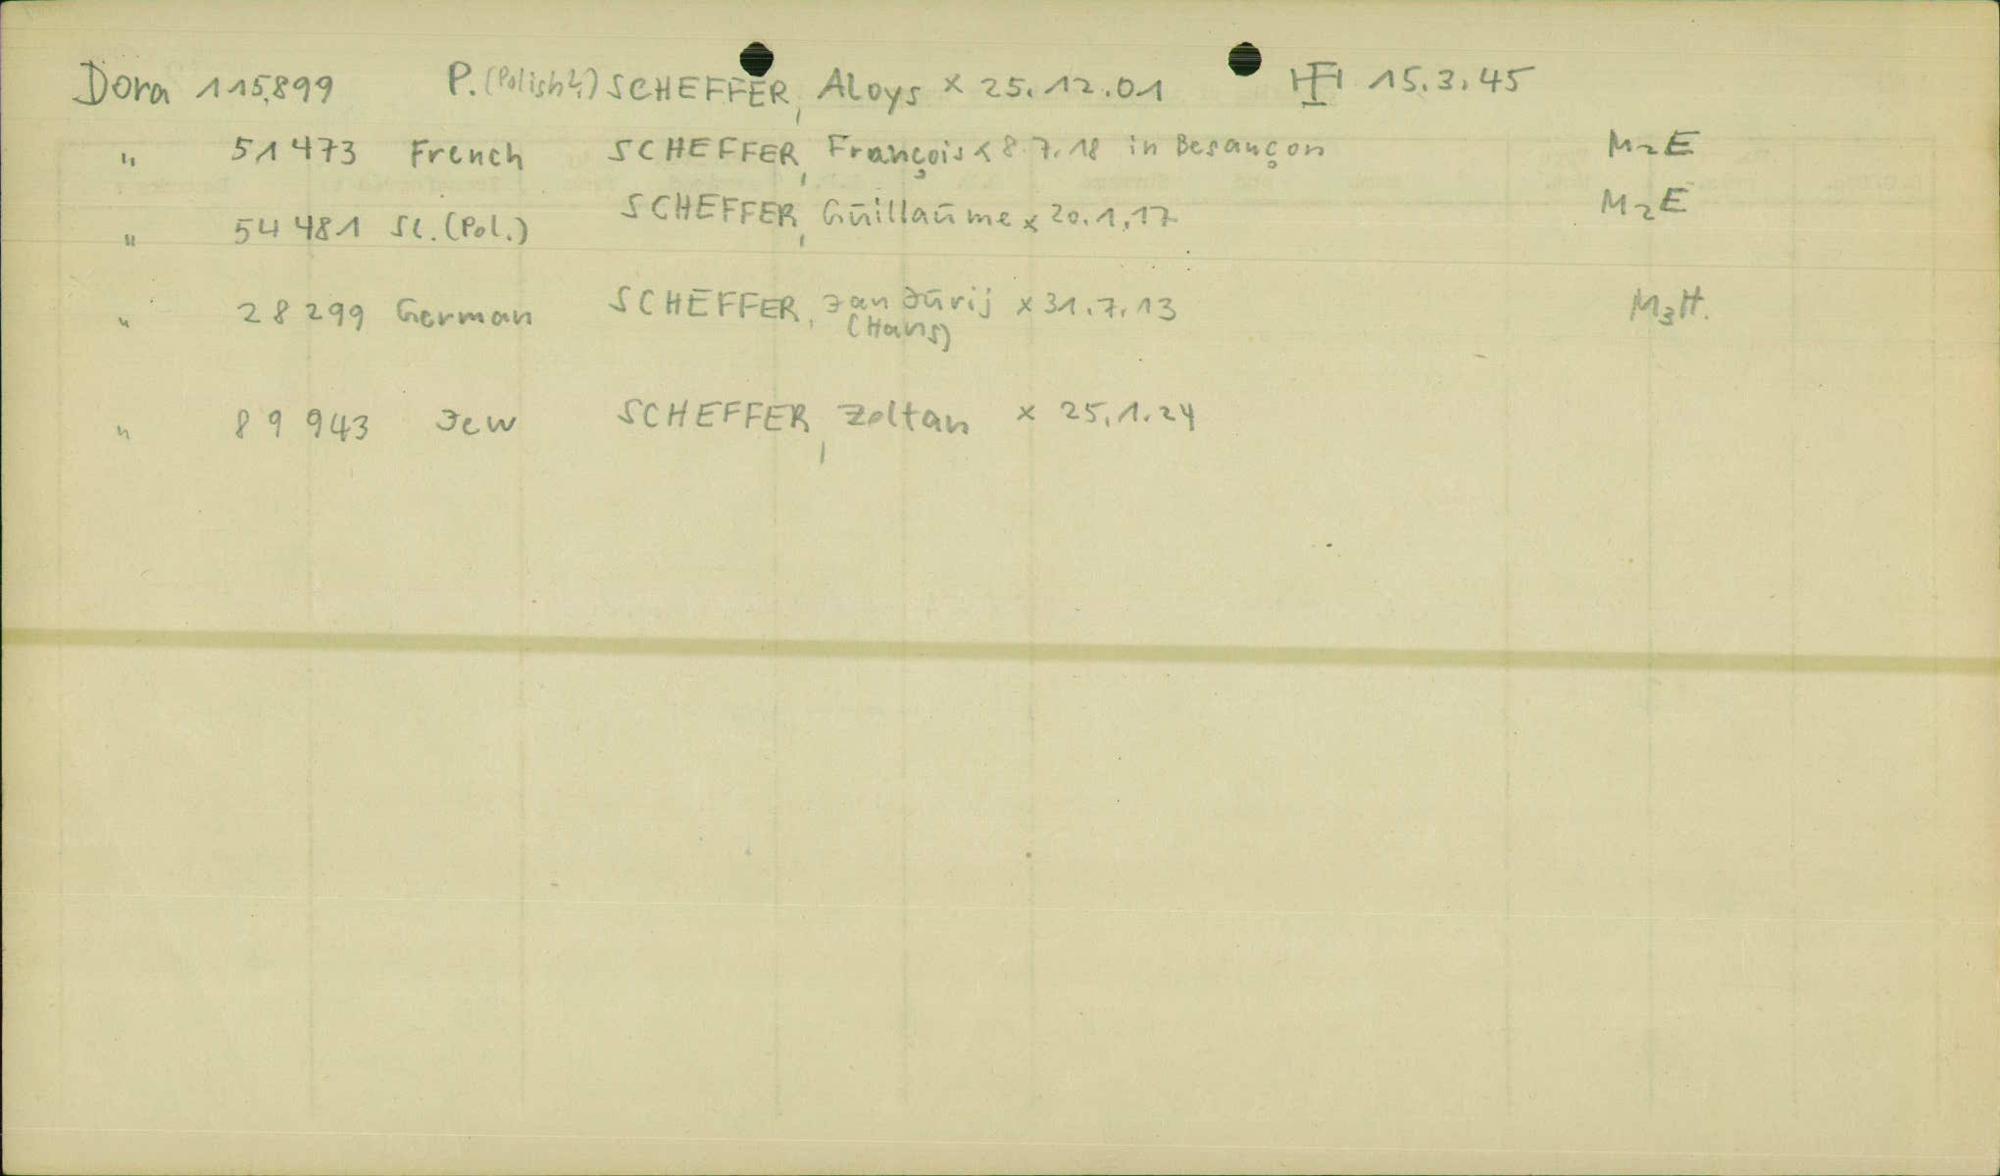 Dora 115.899 P. (Polish?) SCHEFFER, Aloys × 25.12.01 15.3.45
" 51 473 French SCHEFFER, François × 8.7.18 in Besançon M2E
" 54 481 Sl. (Pol.) SCHEFFER, Guillaume × 20.1.17 M2E
" 28 299 German SCHEFFER, Jan Jurij × 31.7.13 M3H.
(Hans)
" 89 943 Jew SCHEFFER, Zoltan × 25.1.24